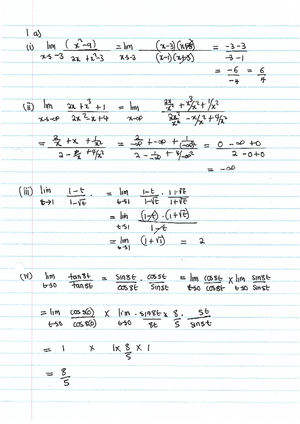 1 a)
(i) lim x→-3 (x²-9)/(2x+x²-3) = lim x→-3 (x-3)(x+3)/(x-1)(x+3) = (-3-3)/(-3-1)
= -6/-4 = 6/4
(ii) lim x→-∞ (2x+x³+1)/(2x²-x+4) = lim x→-∞ (2x/x²+x³/x²+1/x²)/(2x²/x²-x/x²+4/x²)
= (2/x+x+1/x²)/(2-1/x+4/x²) = (2/-∞+-∞+1/(-∞)²)/(2-1/-∞+4/-∞²) = (0-∞+0)/(2-0+0)
= -∞
(iii) lim t→1 (1-t)/(1-√t) = lim t→1 (1-t)/(1-√t) · (1+√t)/(1+√t)
= lim t→1 (1-t)·(1+√t)/(1-t)
= lim t→1 (1+√1) = 2
(iv) lim t→0 tan8t/tan5t = sin8t/cos8t · cos5t/sin5t = lim t→0 cos5t/cos8t × lim t→0 sin8t/sin5t
= lim t→0 cos5(0)/cos8(0) × lim t→0 · sin8t/8t × 8/5 · 5t/sin5t
= 1 × 1 × 8/5 × 1
= 8/5